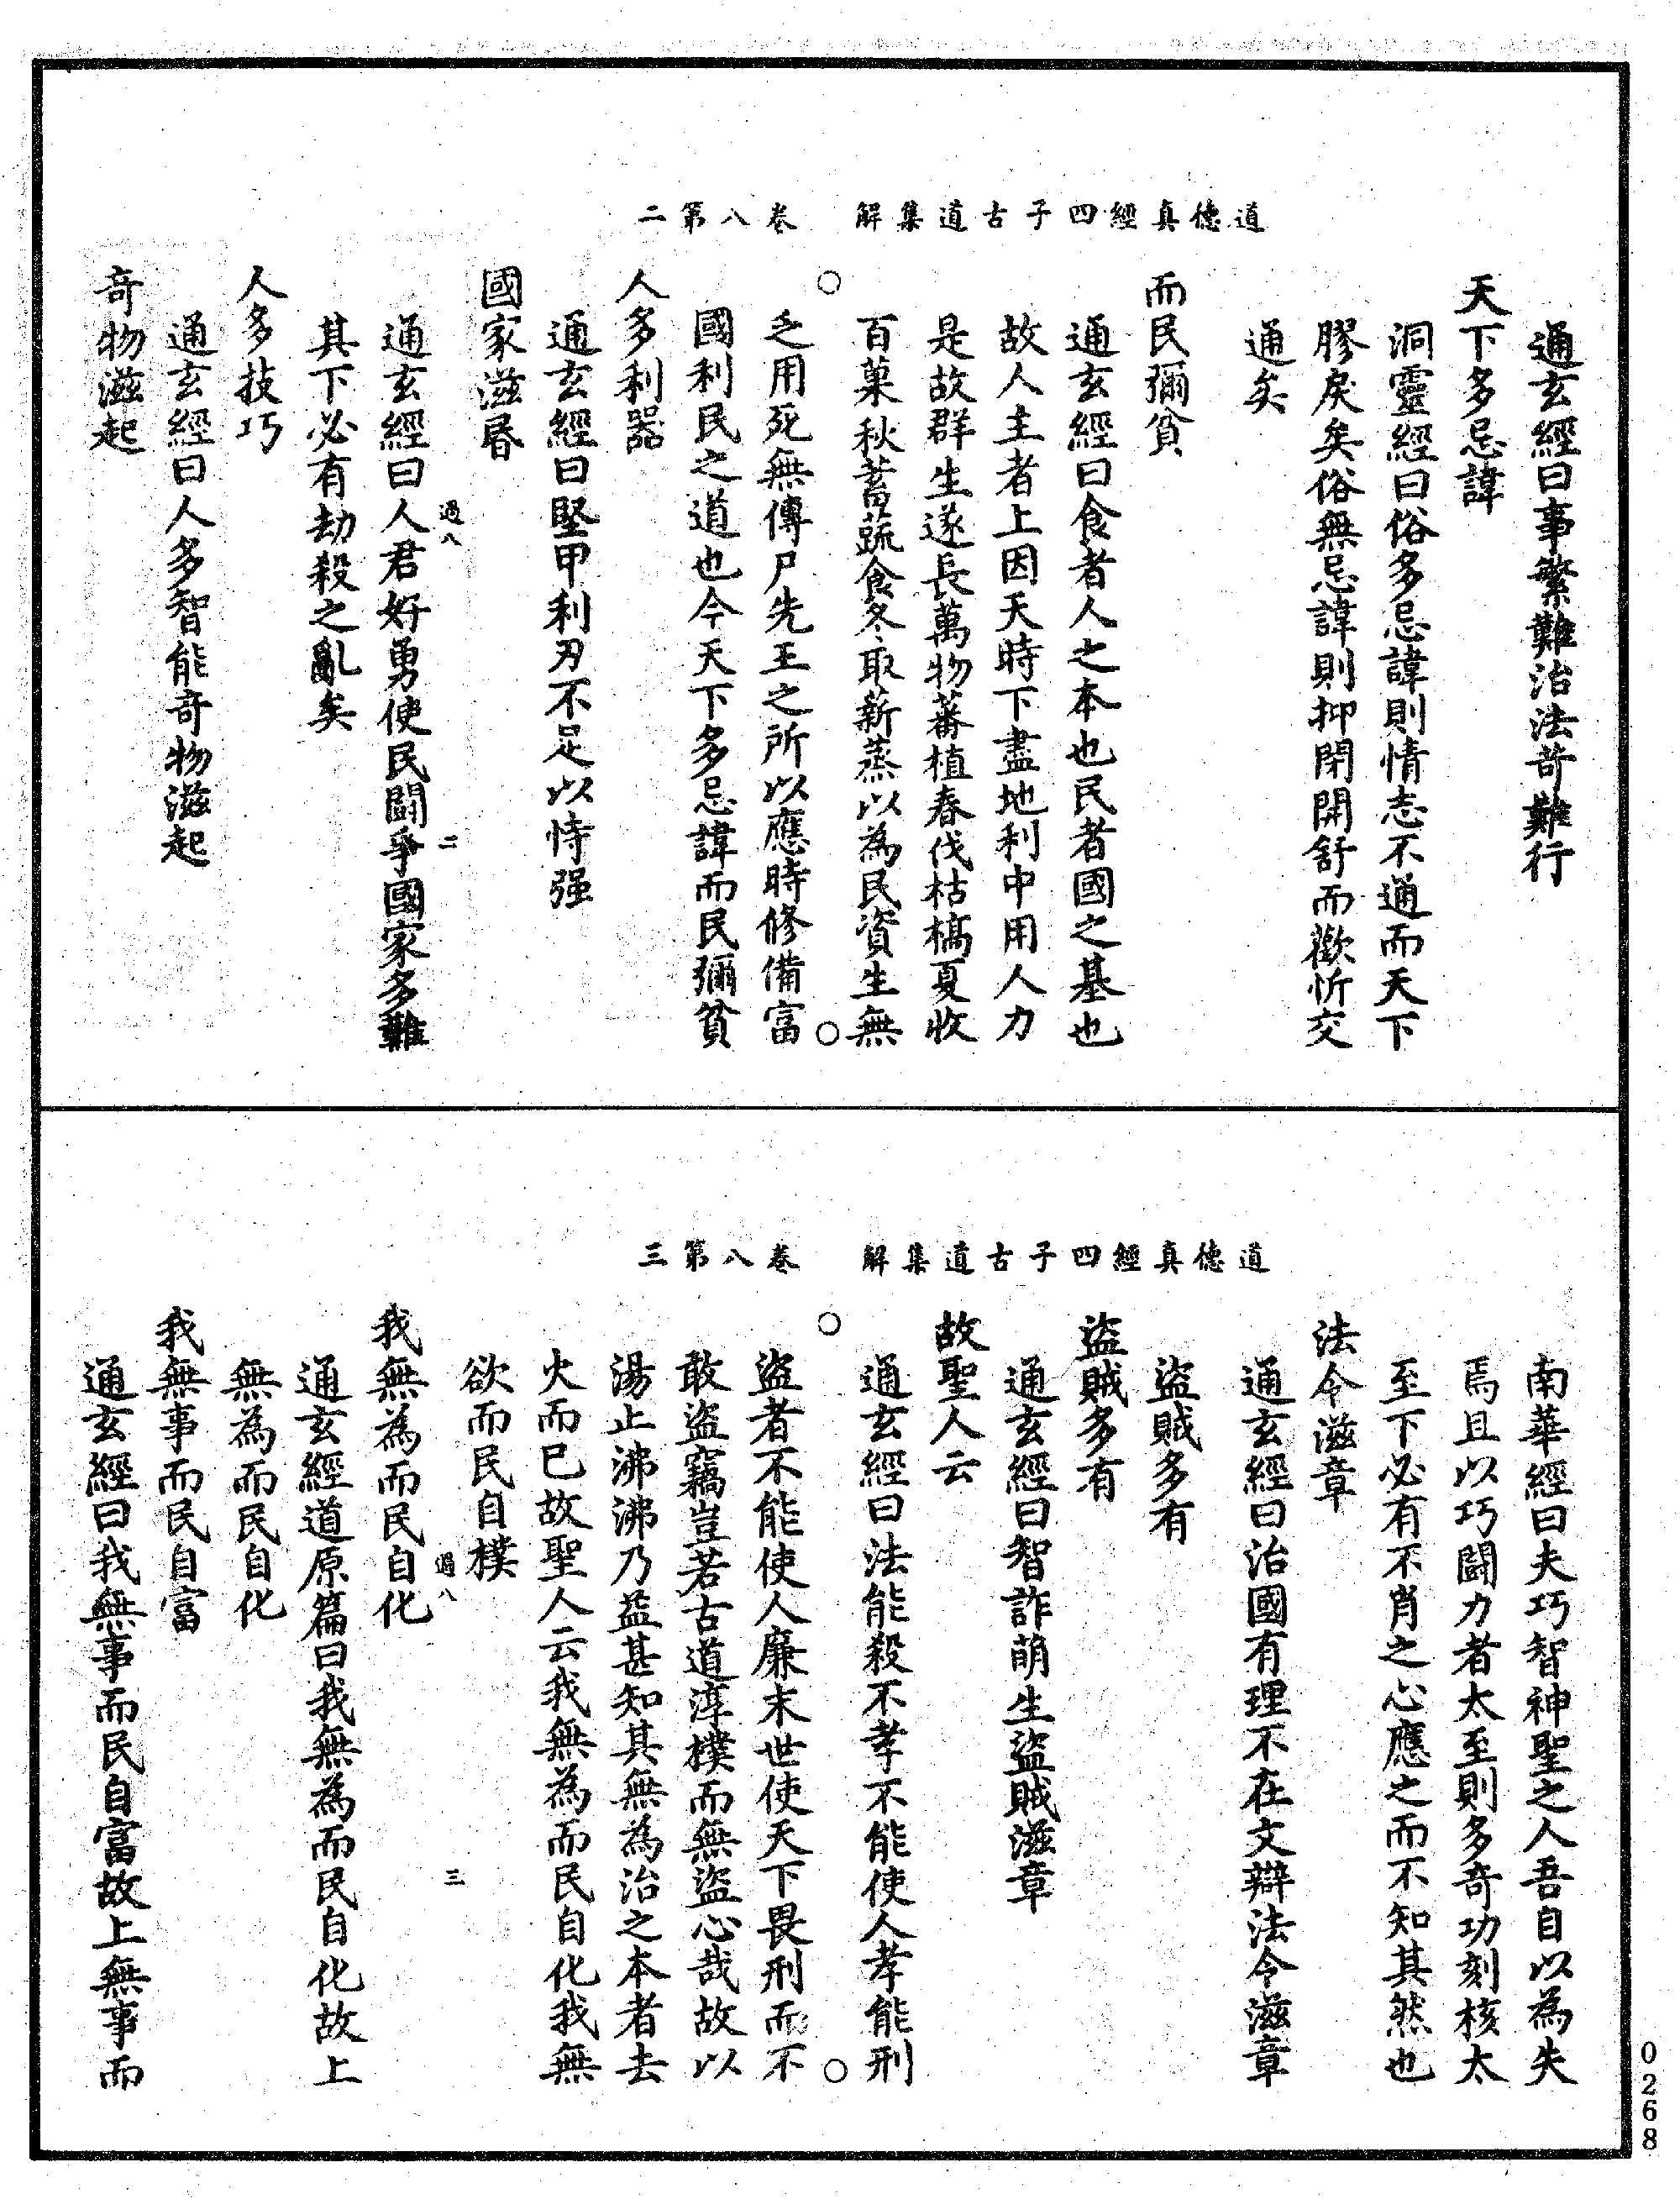 道德真經四子古道集解　卷八第二
通玄經曰事繁難治法苛難行
天下多忌諱
洞靈經曰俗多忌諱則情志不通而天下
膠戾矣俗無忌諱則抑閉開舒而歡忻交
通矣
而民彌貧
通玄經曰食者人之本也民者國之基也
故人主者上因天時下盡地利中用人力
是故群生遂長萬物蕃植春伐枯槁夏收
百菓秋蓄蔬食冬取薪蒸以為民資生無
乏用死無傳尸先王之所以應時修備富
國利民之道也今天下多忌諱而民彌貧
人多利器
通玄經曰堅甲利刃不足以恃强
國家滋昬
過八　二
通玄經曰人君好勇使民鬪爭國家多難
其下必有劫殺之亂矣
人多技巧
通玄經曰人多智能奇物滋起
奇物滋起
道德真經四子古道集解　卷八第三
南華經曰夫巧智神聖之人吾自以為失
焉且以巧鬪力者太至則多奇功刻核太
至下必有不肖之心應之而不知其然也
法令滋章
通玄經曰治國有理不在文辯法令滋章
盜賊多有
盜賊多有
通玄經曰智詐萌生盜賊滋章
故聖人云
通玄經曰法能殺不孝不能使人孝能刑
盜者不能使人廉末世使天下畏刑而不
敢盜竊豈若古道淳樸而無盜心哉故以
湯止沸沸乃益甚知其無為治之本者去
火而已故聖人云我無為而民自化我無
欲而民自樸
過八　三
我無為而民自化
通玄經道原篇曰我無為而民自化故上
無為而民自化
我無事而民自富
通玄經曰我無事而民自富故上無事而
0268